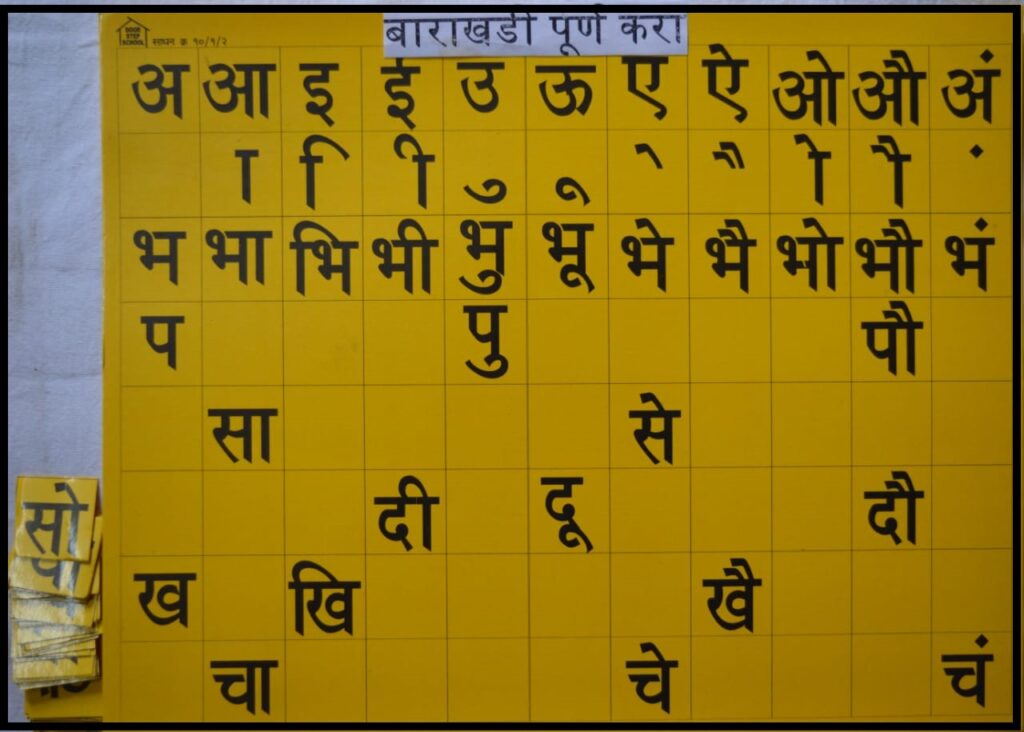 बाराखडी पूर्ण करा
DOOR
STEP
SCHOOL
साधन क्र १०/१/२
अ आ इ ई उ ऊ ए ऐ ओ औ अं
ा ि ी ु ू े ै ो ौ ं
भ भा भि भी भु भू भे भै भो भौ भं
प पु पौ
सा से
दी दू दौ
सो
ख खि खै
चा चे चं